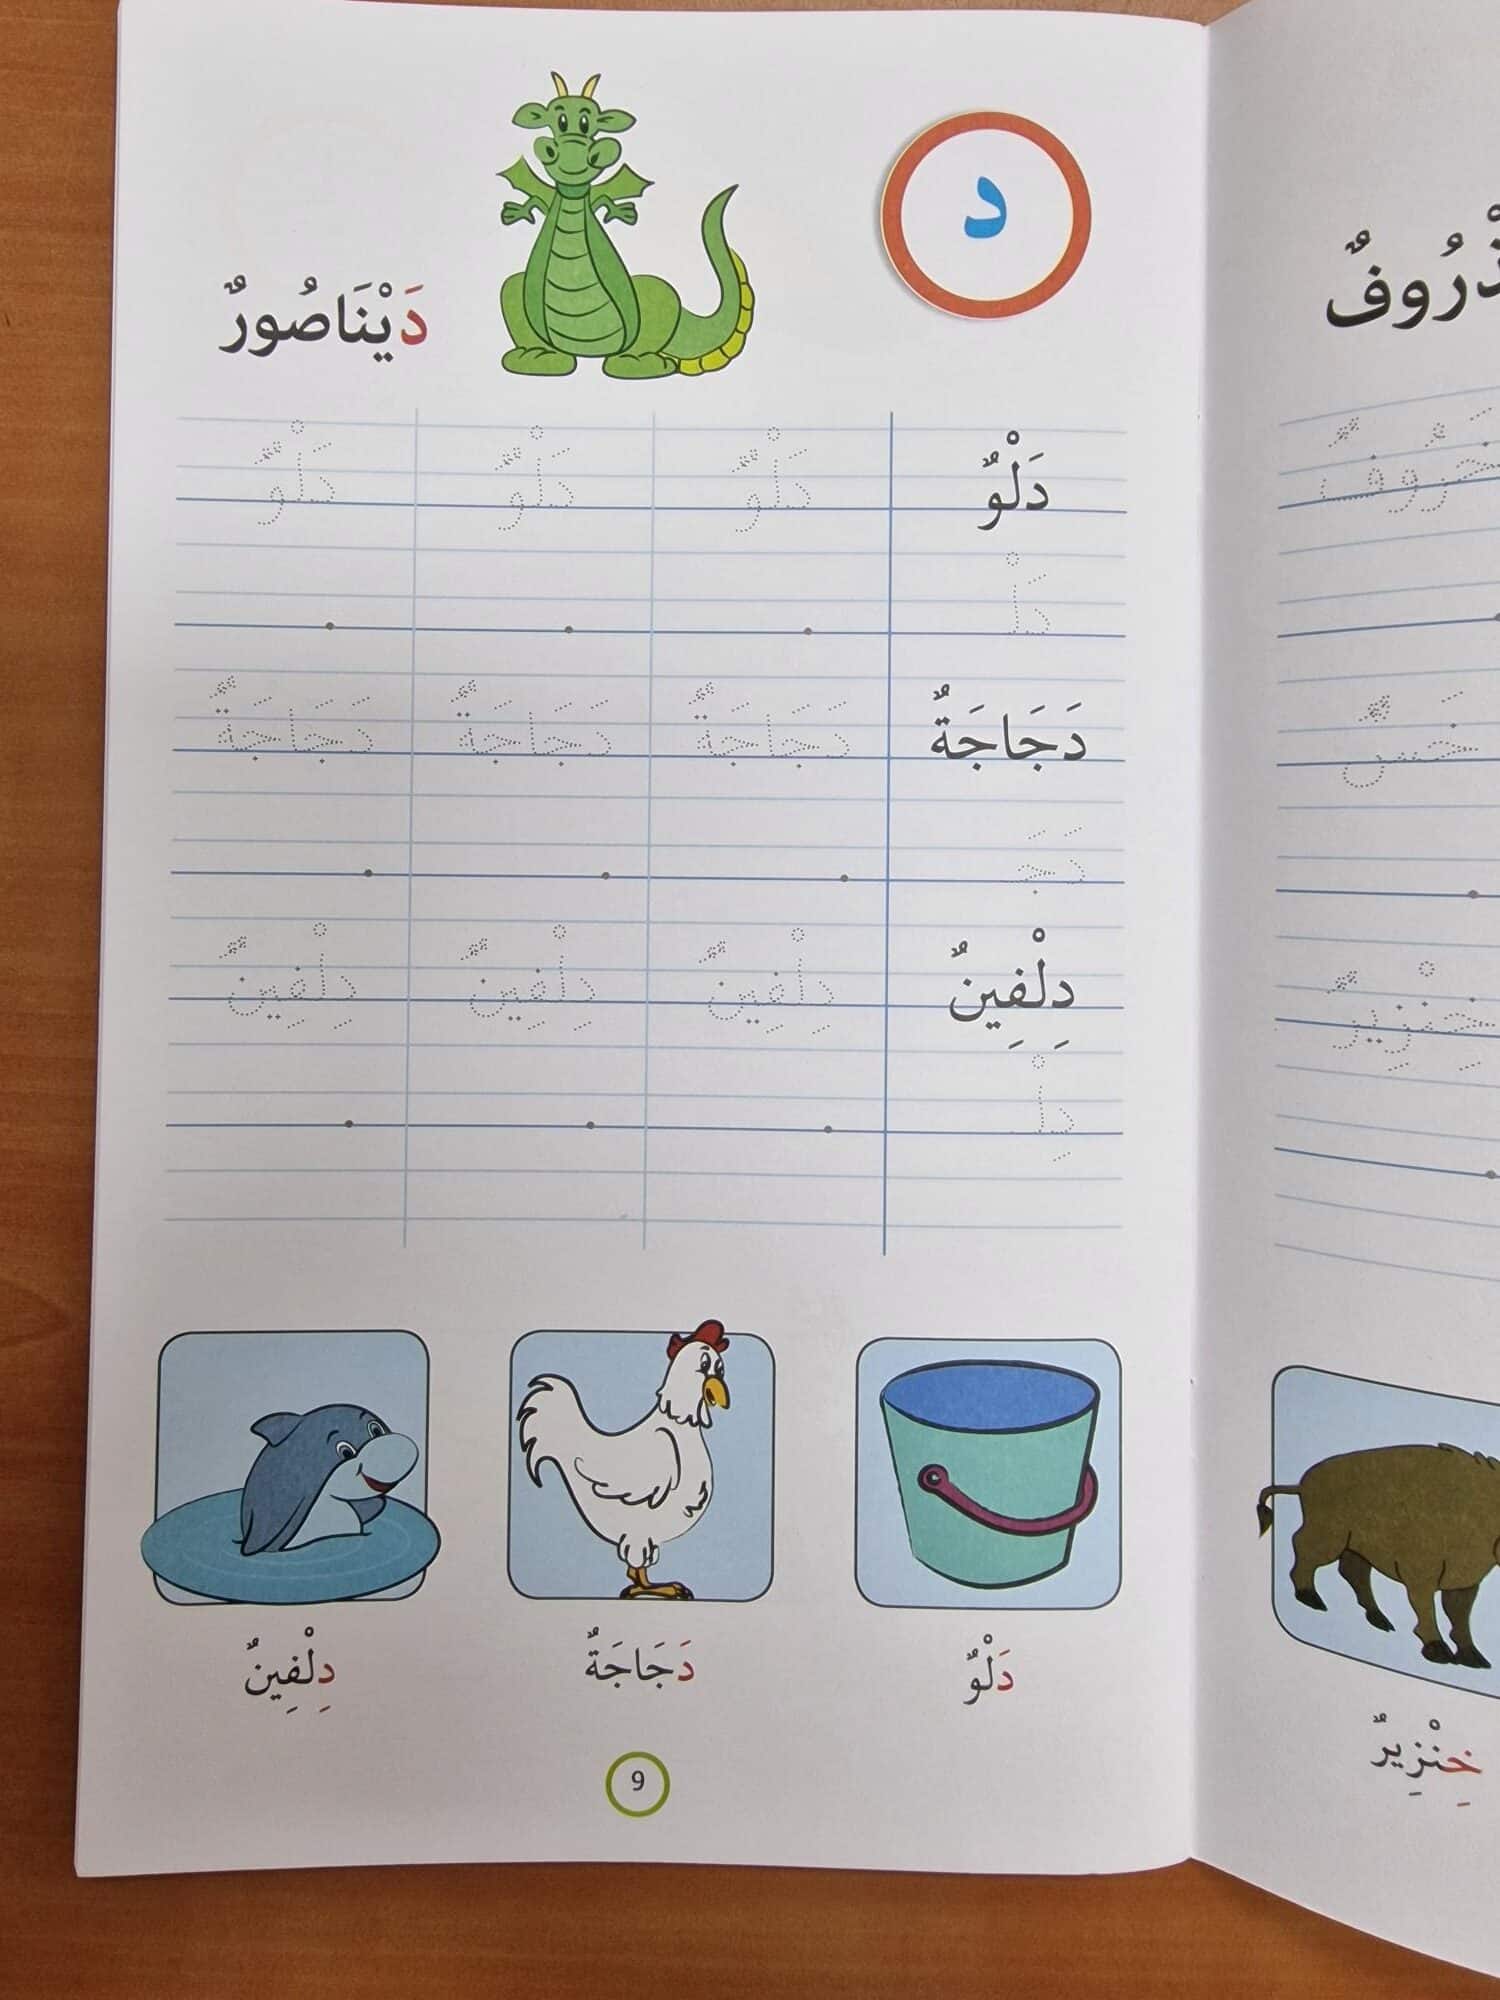 د
دَيْنَاصُورٌ
دَلْوٌ دَلْوٌ دَلْوٌ دَلْوٌ
دَلْ
دَجَاجَةٌ دَجَاجَةٌ دَجَاجَةٌ دَجَاجَةٌ
دَجَ
دِلْفِينٌ دِلْفِينٌ دِلْفِينٌ دِلْفِينٌ
دِلْ
دَلْوٌ دَجَاجَةٌ دِلْفِينٌ
9
خِنْزِيرٌ